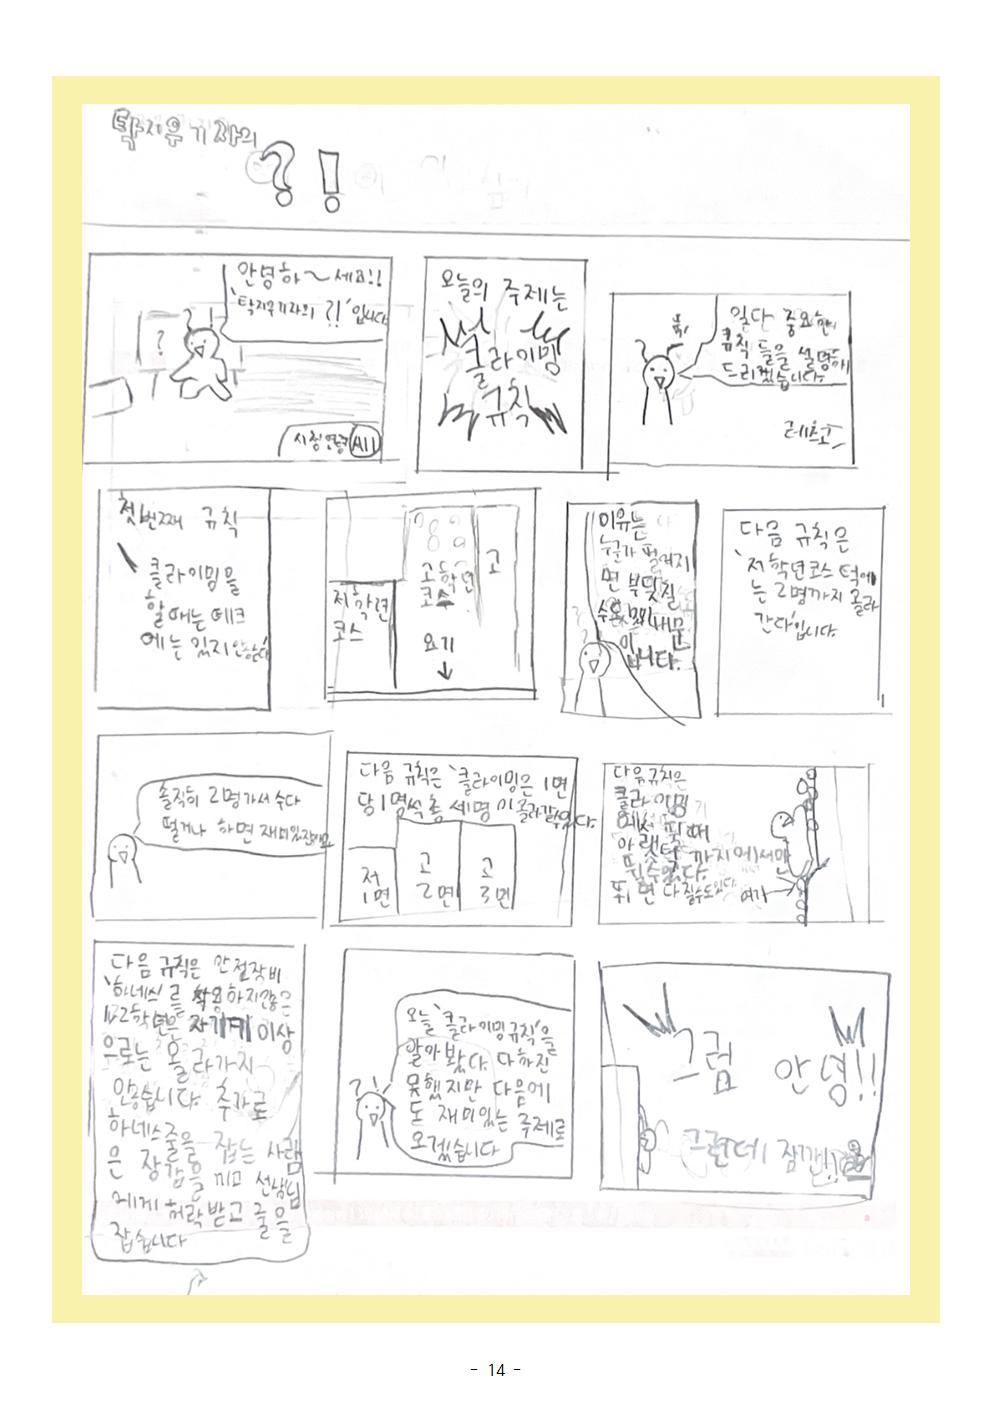 탁지우기자의
?!
안녕하~세요!!
'탁지우기자의 ?!'입니다
?
시청연령 All
오늘의 주제는
클라이밍
규칙
일단 중요한
규칙 들을 설명해
드리겠습니다.
레츠고
첫번째 규칙
클라이밍을
할때는 데크
에는 있지않는다
저학년
코스
고학년
코스
고
요기
↓
이유는
누군가 떨어지
면 부딪칠
수도 있기 때문
입니다.
다음 규칙은
'저학년코스 턱에
는 2명까지 올라
간다'입니다.
솔직히 2명가서 수다
떨거나 하면 재미있잖아요
다음 규칙은 '클라이밍은 1면
당 1명씩 총 세명이 올라갈수있다.
저
1면
고
2면
고
3면
다음규칙은
클라이밍
에서 뛸때
아랫턱 까지에서만
뛸수있다.
뛰면 다칠수도있다.
여기
다음 규칙은 안전장비
'하네스'를 착용하지않은
1,2학년은 자기키 이상
으로는 올라가지
않습니다. 추가로
하네스줄을 잡는 사람
은 장갑을 끼고 선생님
에게 허락받고 줄을
잡습니다
오늘 '클라이밍규칙'을
알아봤다. 다하진
못했지만 다음에
도 재미있는 주제로
오겠습니다
그럼 안녕!!
그런데 잠깐!?
- 14 -